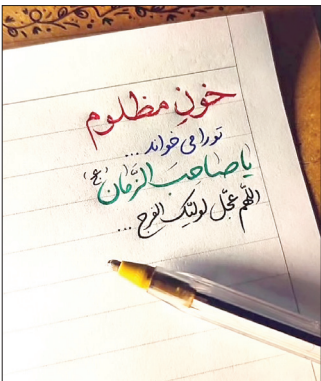 خونِ مظلوم
تو را می خواند ...
یا صاحِبَ الزَّمان (عج)
اللهم عجّل لولیّک الفرج ...